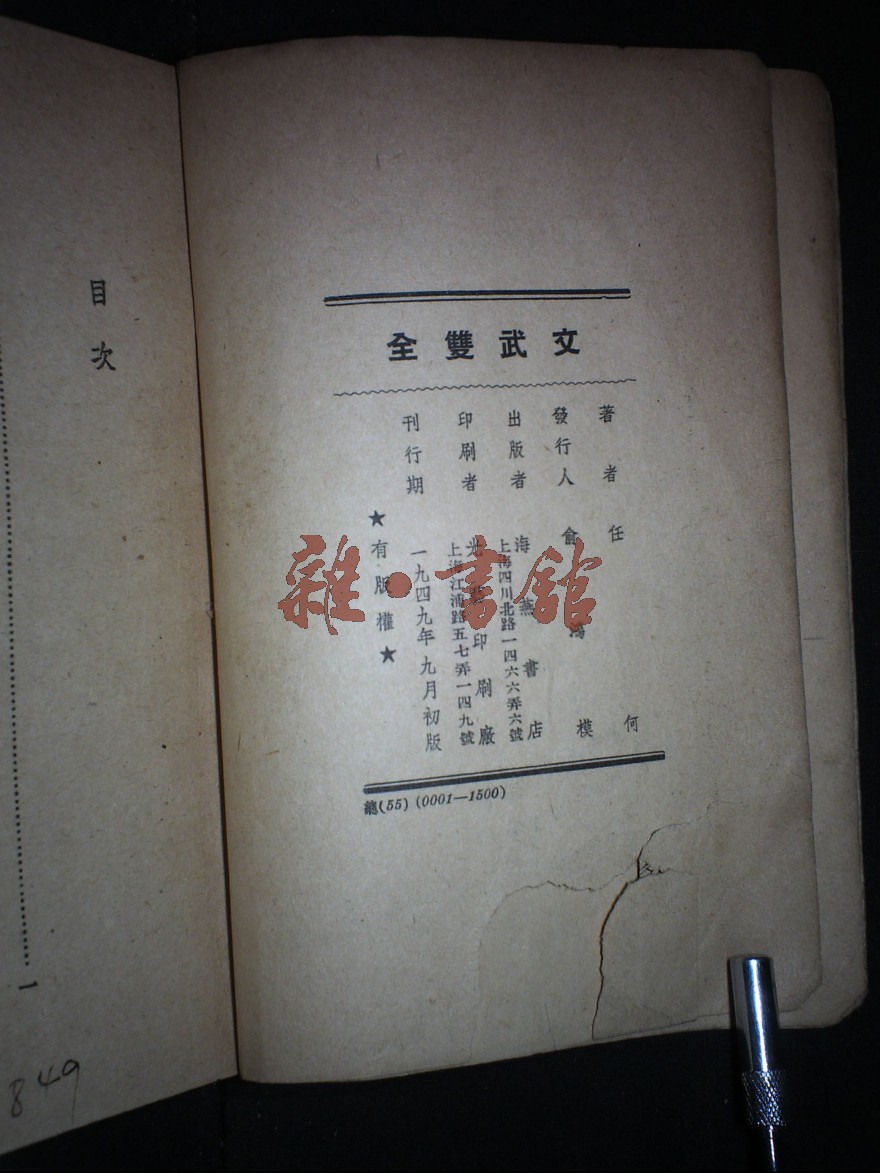 文武雙全
著者 任何
發行人 俞鴻模
出版者 海燕書店
上海四川北路一四六六弄六號
印刷者 光藝印刷廠
上海江浦路五七弄一四九號
刊行期 一九四九年九月初版
★有版權★
總(55) (0001—1500)
目次
1
849
雜·書館